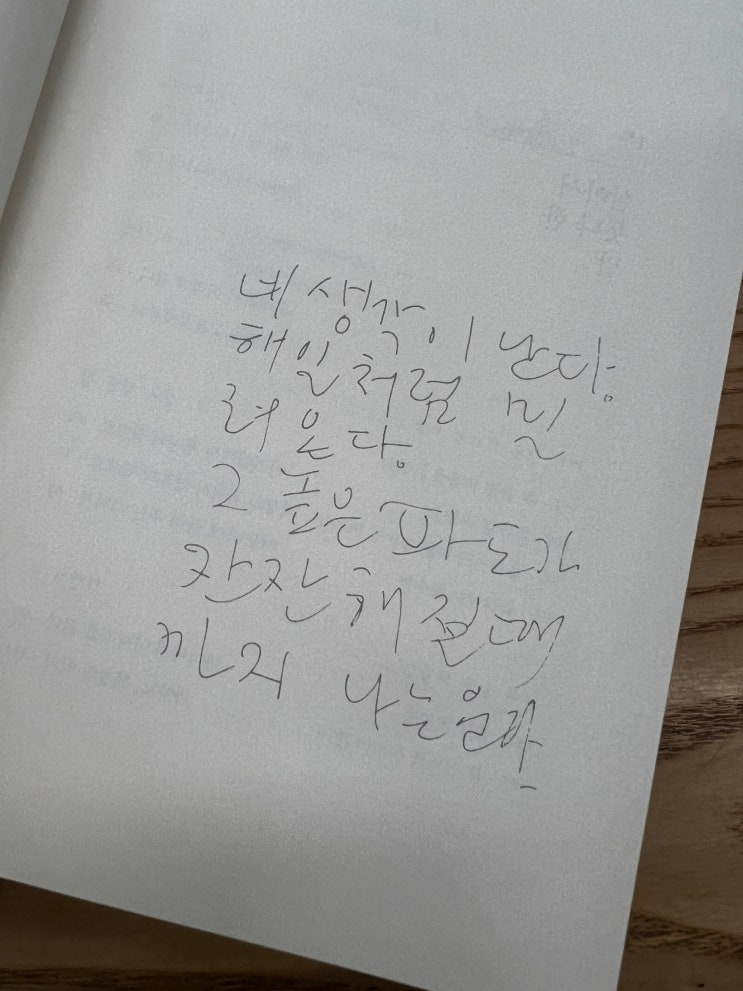 네 생각이 난다.
해일처럼 밀
려온다.
그 높은 파도가
잔잔해질때
까지 나는운다.